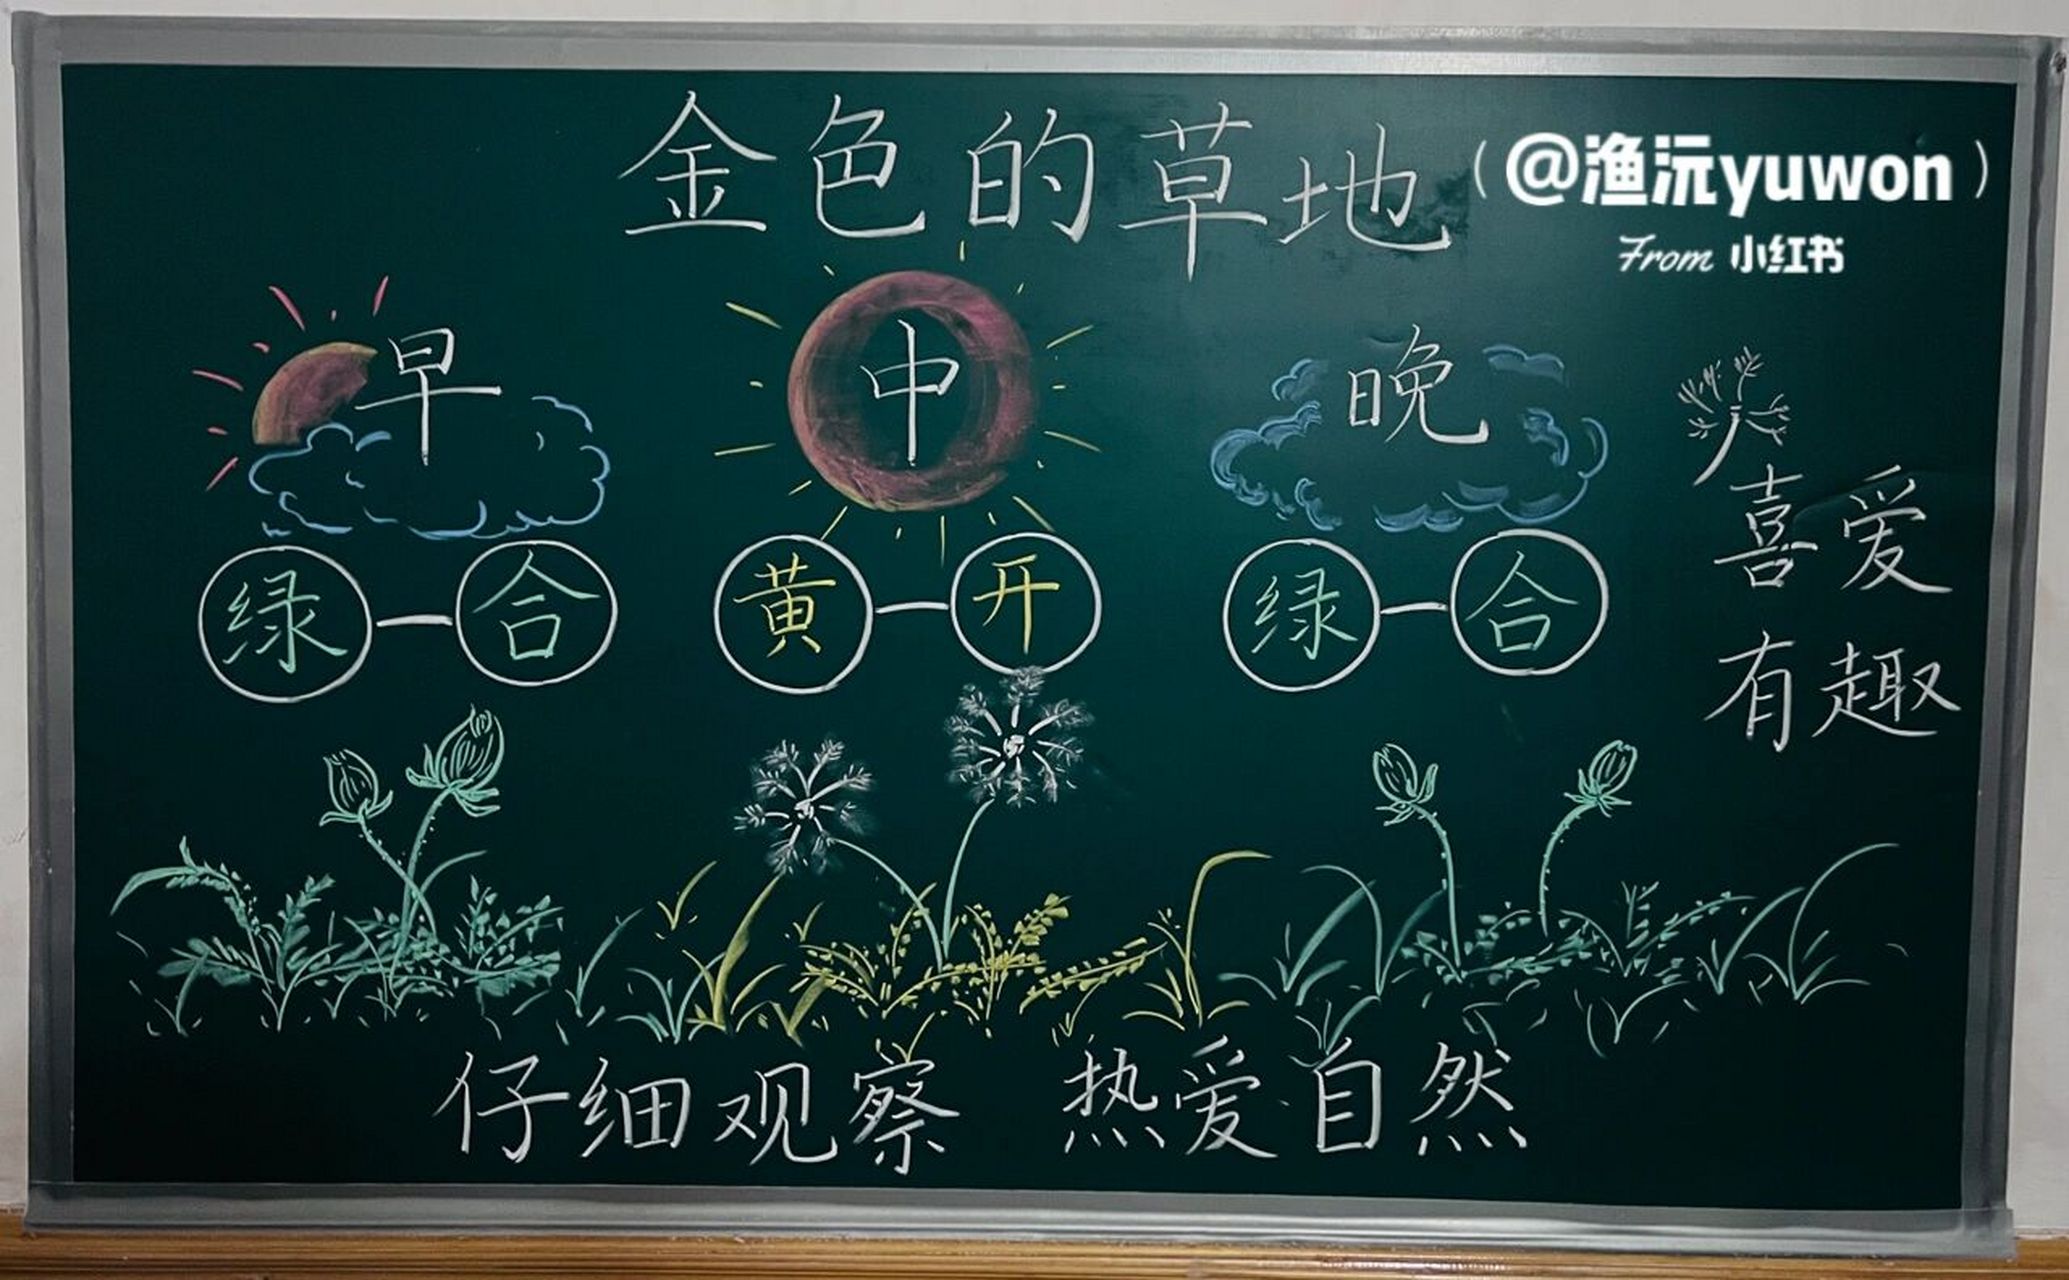 金色的草地
(@渔沅yuwon)
From 小红书
早 中 晚
绿 合 黄 开 绿 合
喜爱
有趣
仔细观察 热爱自然